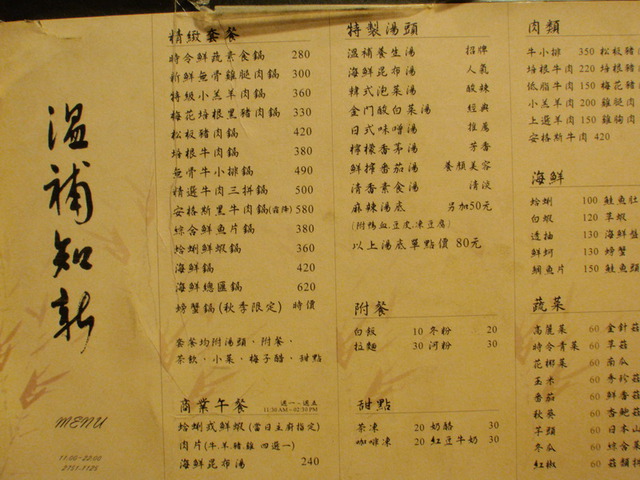 溫補知新
MENU
11:00~22:00
2751-1125
精緻套餐
時令鮮蔬素食鍋 280
新鮮無骨雞腿肉鍋 300
特級小羔羊肉鍋 360
梅花培根黑豬肉鍋 330
松板豬肉鍋 420
培根牛肉鍋 380
無骨牛小排鍋 490
精選牛肉三拼鍋 500
安格斯黑牛肉鍋(霜降) 580
綜合鮮魚片鍋 380
蛤蜊鮮蝦鍋 360
海鮮鍋 420
海鮮總匯鍋 620
螃蟹鍋(秋季限定) 時價
套餐均附湯頭、附餐、
茶飲、小菜、梅子醋、甜點
商業午餐 週一~週五
11:30 AM~02:30 PM
蛤蜊式鮮蝦(當日主廚指定)
肉片(牛.羊.豬.雞 四選一)
海鮮昆布湯 240
特製湯頭
溫補養生湯 招牌
海鮮昆布湯 人氣
韓式泡菜湯 酸辣
金門酸白菜湯 經典
日式味噌湯 推薦
檸檬香茅湯 芳香
鮮檸番茄湯 養顏美容
清香素食湯 清淡
麻辣湯底 另加50元
(附鴨血.豆皮.凍豆腐)
以上湯底單點價 80元
附餐
白飯 10 冬粉 20
拉麵 30 河粉 30
甜點
茶凍 20 奶酪 30
咖啡凍 20 紅豆牛奶 30
肉類
牛小排 350 松板豬
培根牛肉 220 培根豬
低脂牛肉 150 梅花豬
小羔羊肉 200 雞腿肉
上選羊肉 150 雞胸肉
安格斯牛肉 420
海鮮
蛤蜊 100 鮭魚肚
白蝦 120 草蝦
透抽 130 海鮮盤
鮮蚵 130 螃蟹
鯛魚片 150 鮭魚頭
蔬菜
高麗菜 60 金針菇
時令青菜 60 草菇
花椰菜 60 南瓜
玉米 60 秀珍菇
番茄 60 鮮香菇
秋葵 60 杏鮑菇
芋頭 60 日本山
冬瓜 60 綜合菜
紅椒 60 菇類拼